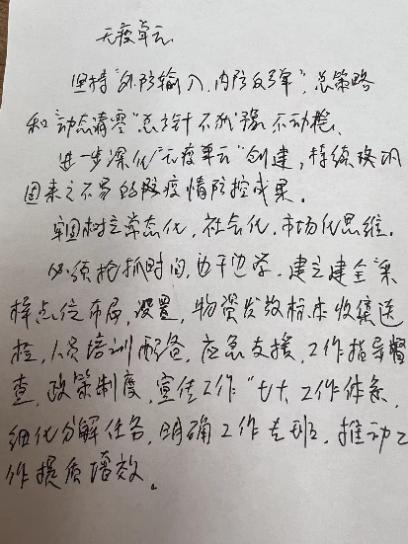 无疫单元
坚持“外防输入,内防反弹”总策略
和“动态清零”总方针不犹豫不动摇、
进一步深化“无疫单元”创建,持续巩
固来之不易的防疫情防控成果。
牢固树立常态化,社会化,市场化思维。
必须抢抓时间,边干边学,建立建全“采
样点位布局,设置,物资发放标本收集送
检,人员培训配备,应急支援,工作指导督
查,政策制度,宣传工作”七大工作体系
细化分解任务,明确工作专班,推动工
作提质增效。